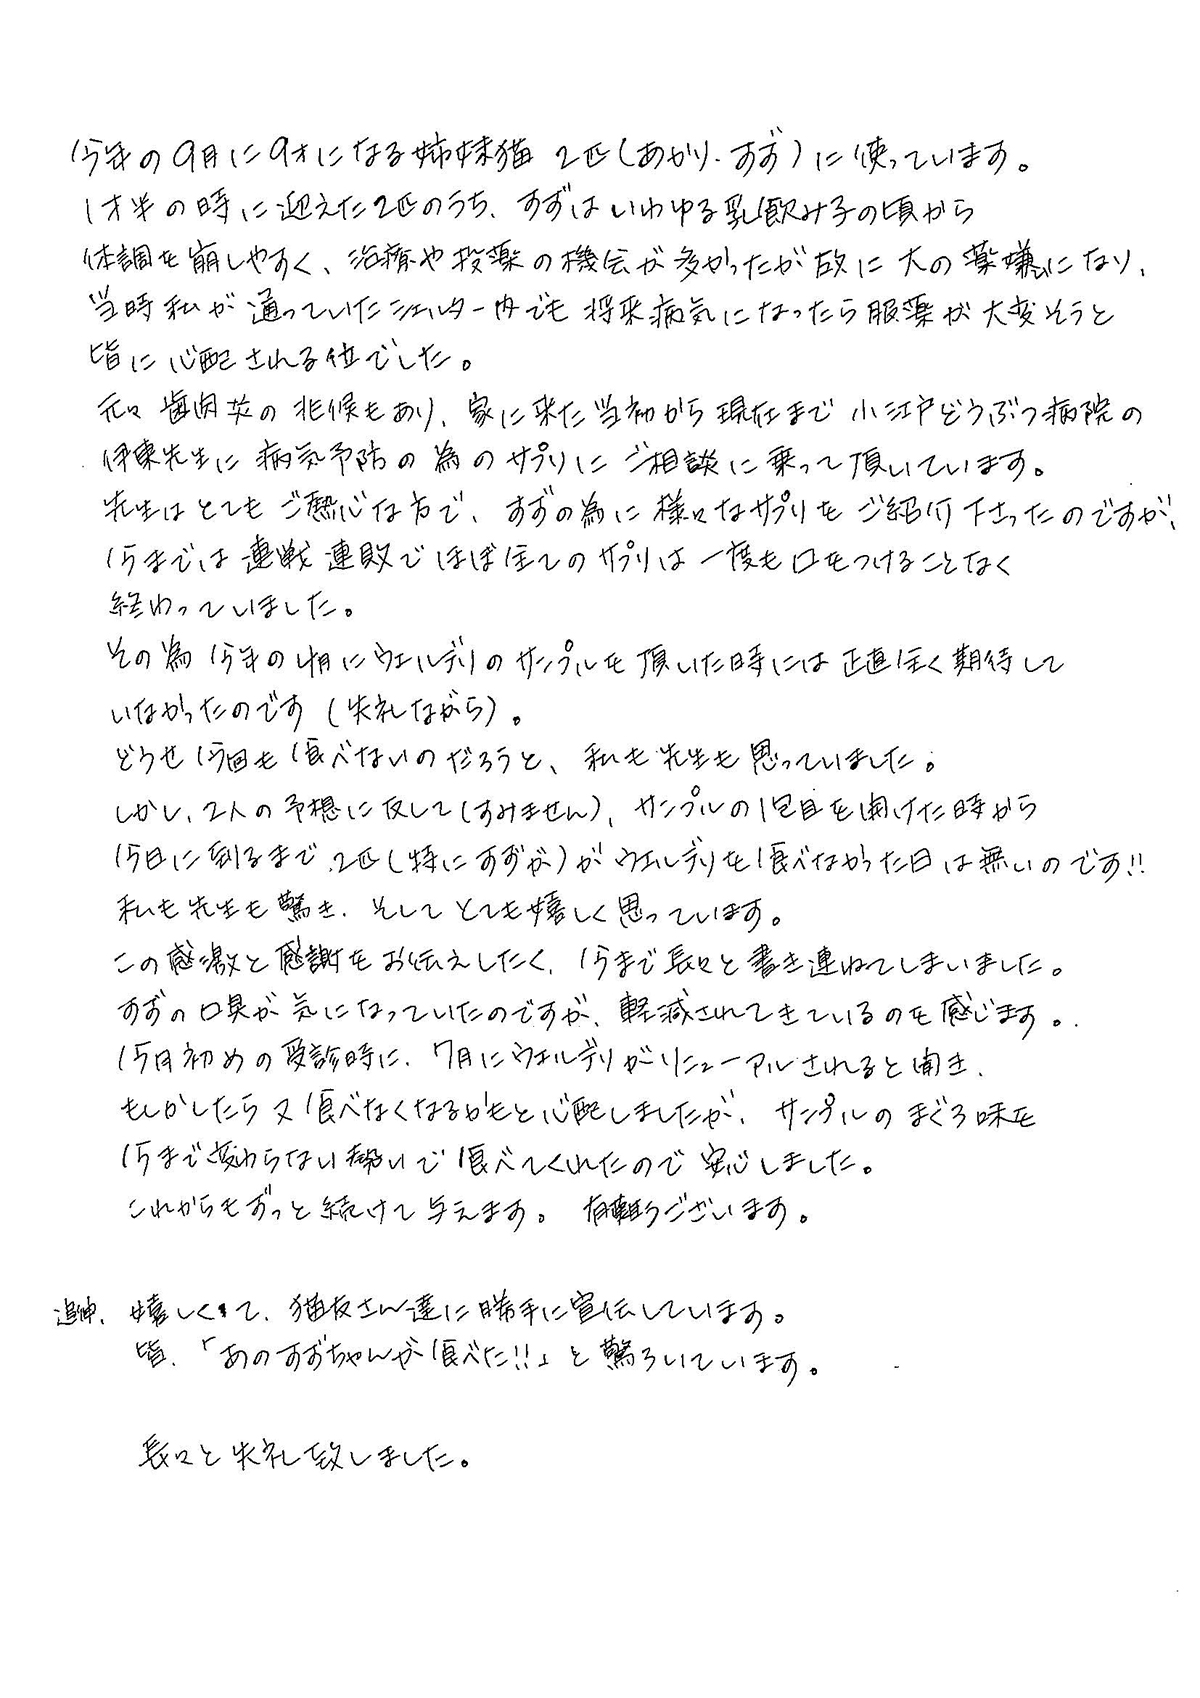 今年の9月に9才になる姉妹猫 2匹(あかり・すず)に使っています。
1才半の時に迎えた2匹のうち、すずはいわゆる乳飲み子の頃から
体調を崩しやすく、治療や投薬の機会が多かったが故に大の薬嫌いになり、
当時私が通っていたシェルター内でも将来病気になったら服薬が大変そうと
皆に心配される位でした。
元々歯肉炎の兆候もあり、家に来た当初から現在まで小江戸どうぶつ病院の
伊東先生に病気予防の為のサプリにご相談に乗って頂いています。
先生はとてもご熱心な方で、すずの為に様々なサプリをご紹介下さったのですが、
今までは連戦連敗でほぼ全てのサプリは一度も口をつけることなく
終わっていました。
その為今年の4月にウェルデリのサンプルを頂いた時には正直全く期待して
いなかったのです(失礼ながら)。
どうせ今回も食べないのだろうと、私も先生も思っていました。
しかし、2人の予想に反して(すみません)、サンプルの1包目を開けた時から
今日に到るまで、2匹(特にすずが)がウェルデリを食べなかった日は無いのです!!
私も先生も驚き、そしてとても嬉しく思っています。
この感激と感謝をお伝えしたく、今まで長々と書き連ねてしまいました。
すずの口臭が気になっていたのですが、軽減されてきているのを感じます。
今月初めの受診時に、7月にウェルデリがリニューアルされると聞き、
もしかしたら又食べなくなるかもと心配しましたが、サンプルのまぐろ味を
今まで変わらない勢いで食べてくれたので安心しました。
これからもずっと続けて与えます。有難うございます。
追伸、嬉しくて、猫友さん達に勝手に宣伝しています。
皆、「あのすずちゃんが食べた!!」と驚ろいています。
長々と失礼致しました。